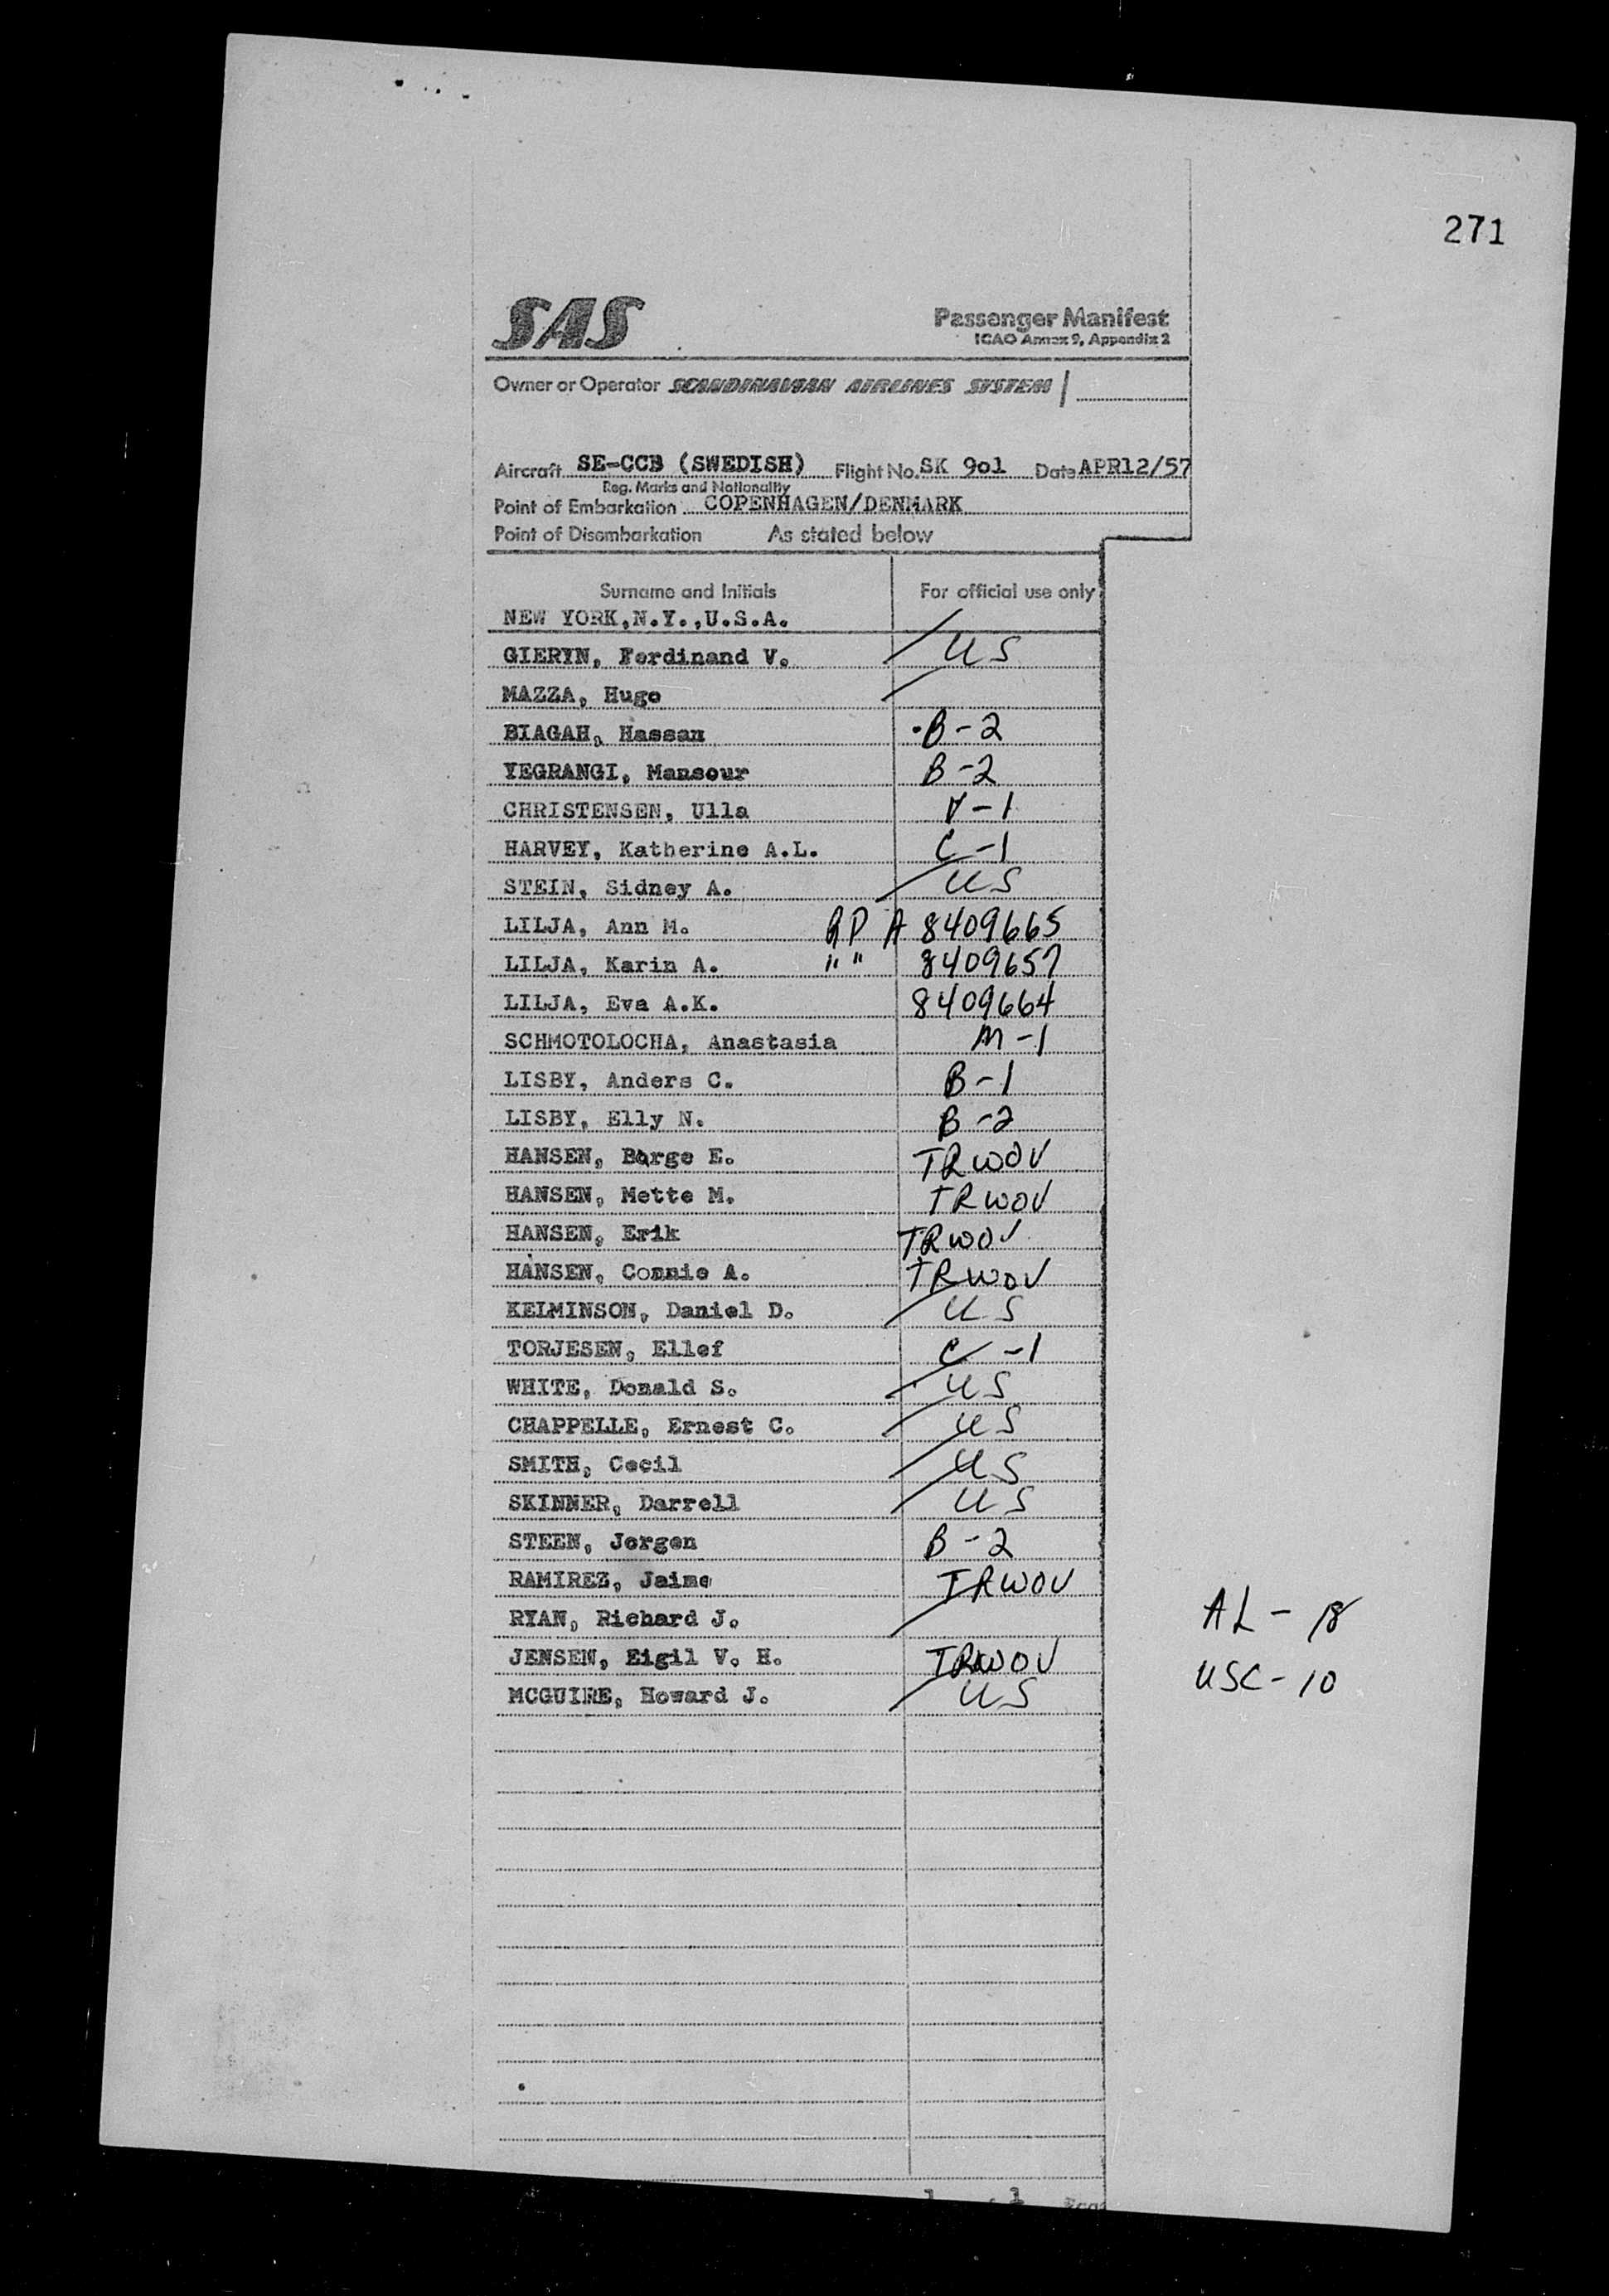 271
SAS
Passenger Manifest
ICAO Annex 9, Appendix 2
Owner or Operator SCANDINAVIAN AIRLINES SYSTEM
Aircraft SE-CCB (SWEDISH) Flight No. SK 901 Date APR12/57
Reg. Marks and Nationality
Point of Embarkation COPENHAGEN/DENMARK
Point of Disembarkation As stated below
Surname and Initials For official use only
NEW YORK,N.Y.,U.S.A.
GIERYN, Ferdinand V. US
MAZZA, Hugo
BIAGAH, Hassan B-2
YEGRANGI, Mansour B-2
CHRISTENSEN, Ulla -1
HARVEY, Katherine A.L. C-1
STEIN, Sidney A. US
LILJA, Ann M. RP A 8409665
LILJA, Karin A. " " 8409657
LILJA, Eva A.K. 8409664
SCHMOTOLOCHA, Anastasia M-1
LISBY, Anders C. B-1
LISBY, Elly N. B-2
HANSEN, Børge E. TRWOV
HANSEN, Mette M. TRWOV
HANSEN, Erik TRWOV
HANSEN, Connie A. TRWOV
KELMINSON, Daniel D. US
TORJESEN, Ellef C-1
WHITE, Donald S. US
CHAPPELLE, Ernest C. US
SMITH, Cecil US
SKINNER, Darrell US
STEEN, Jorgen B-2
RAMIREZ, Jaime TRWOV
RYAN, Richard J.
AL - 18
JENSEN, Eigil V. H. TRWOV
USC-10
MCGUIRE, Howard J. US
1 1